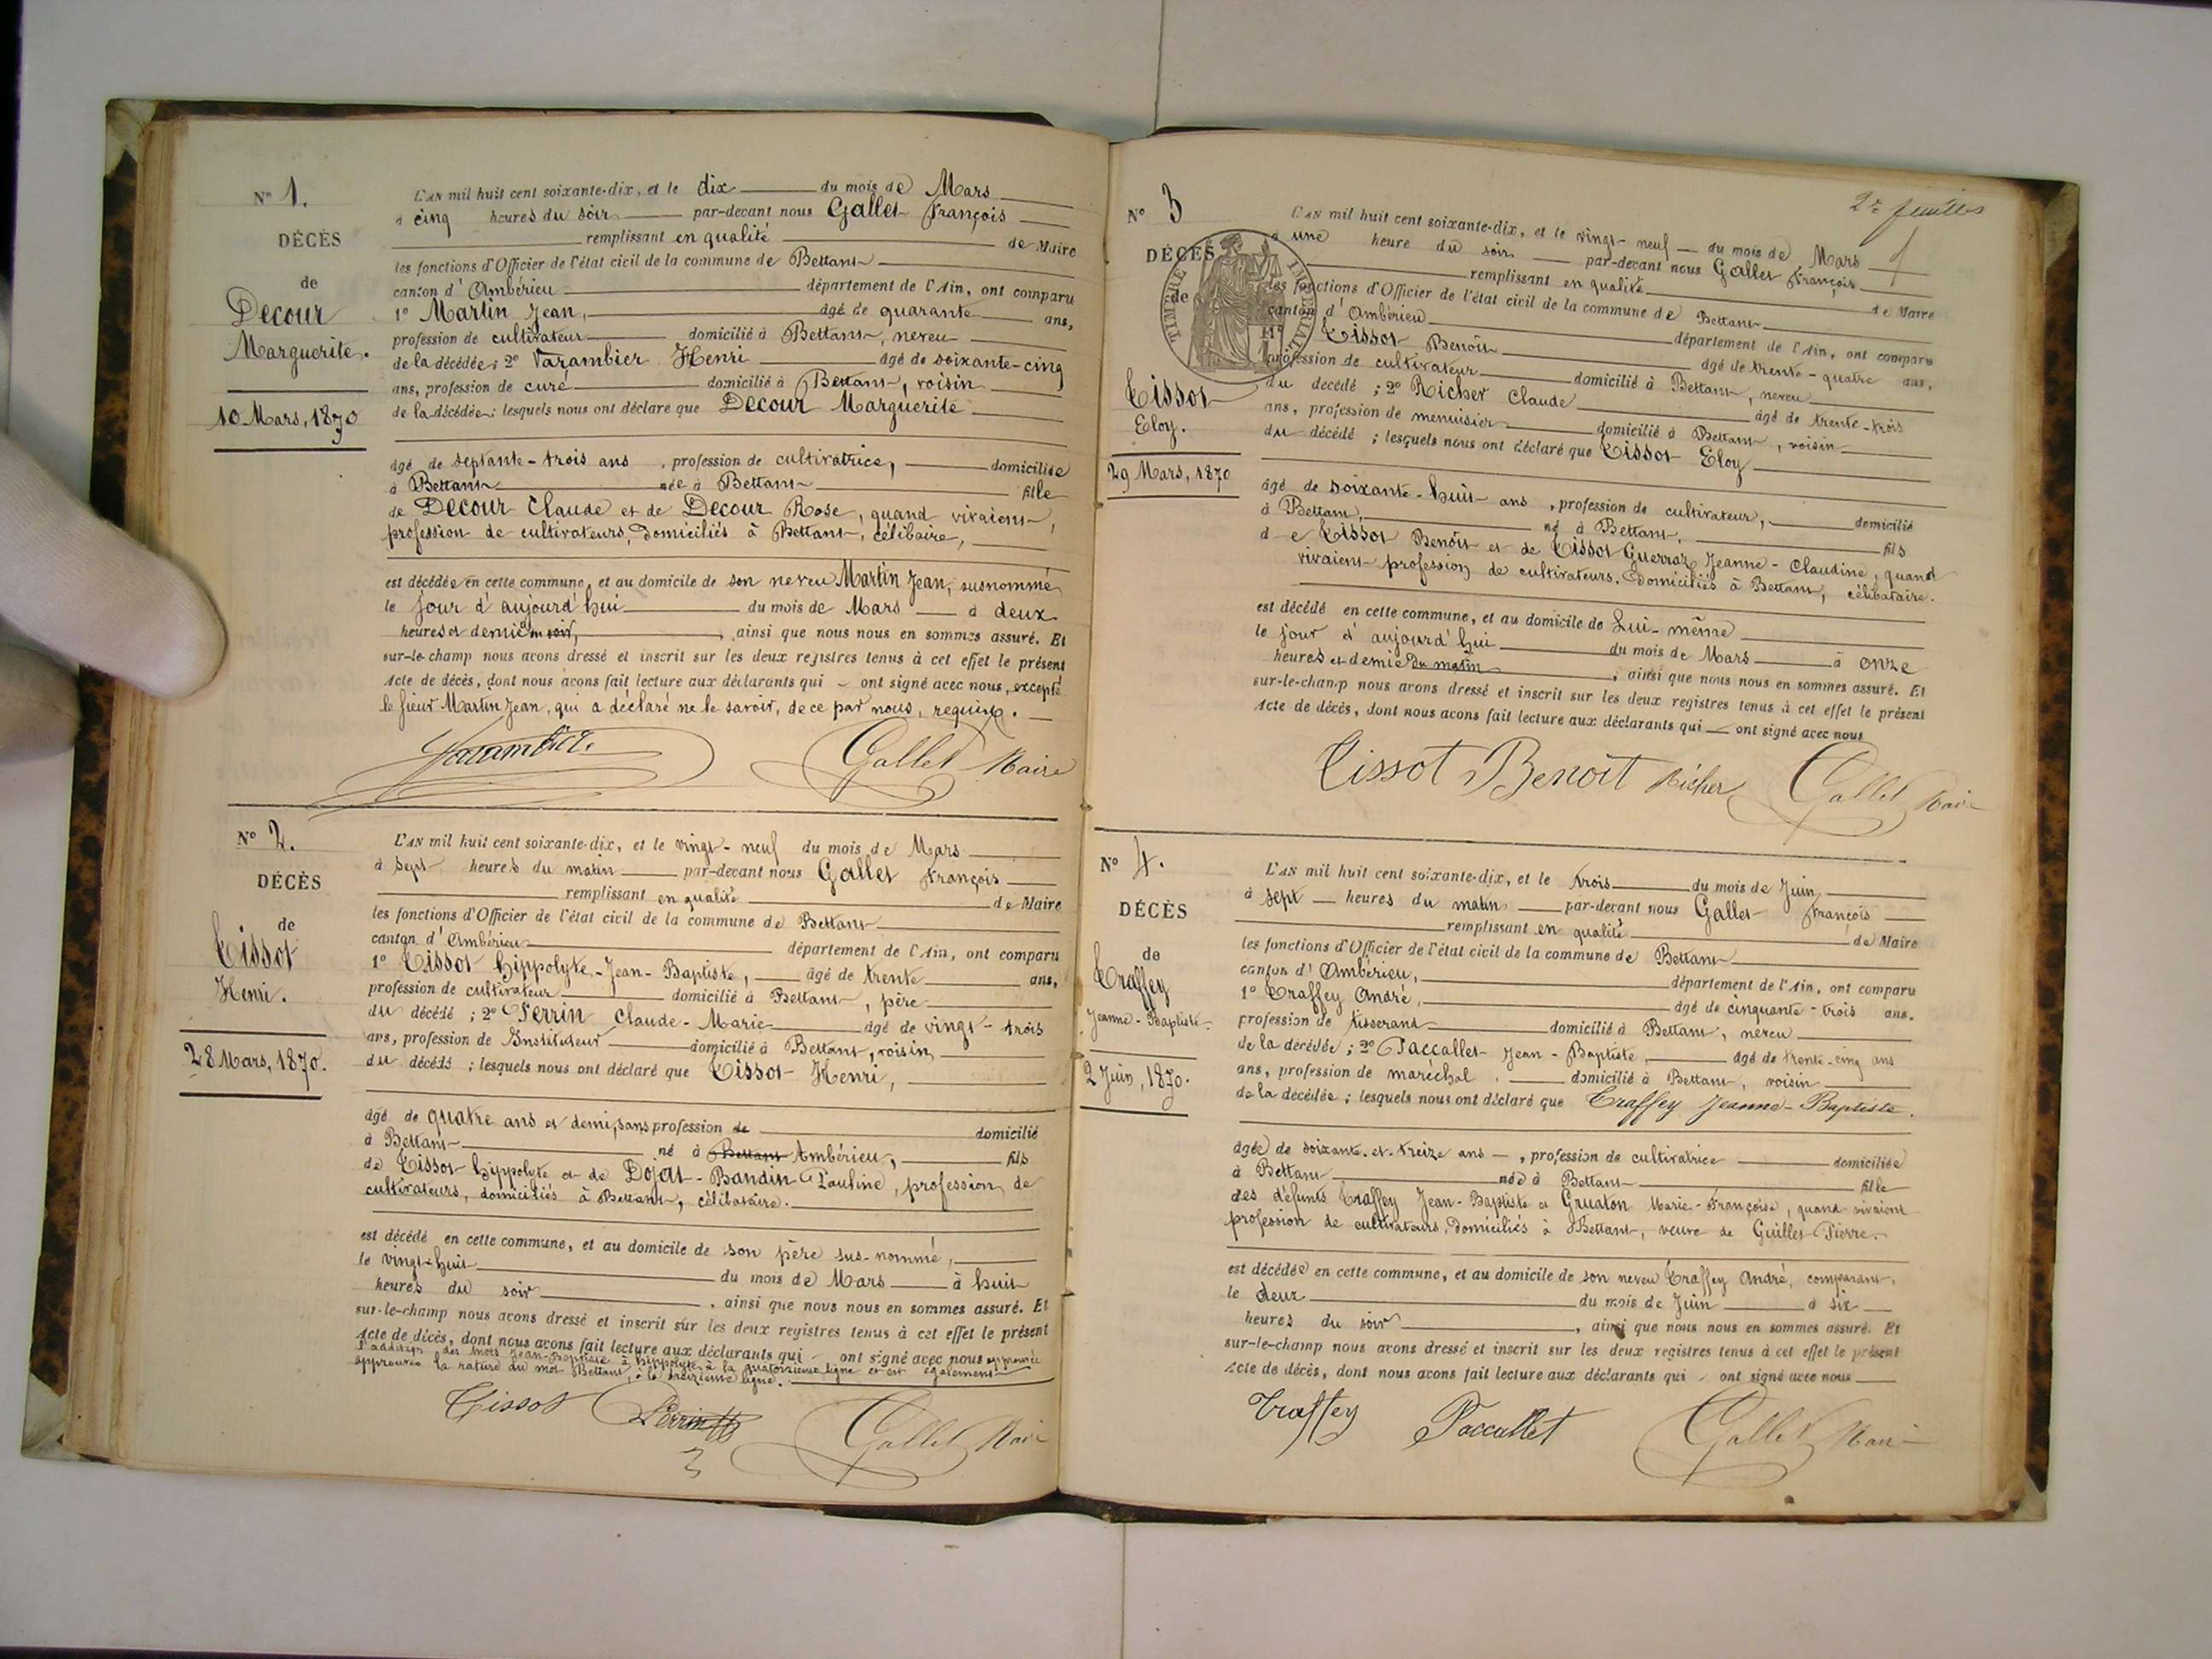 N° 1.
DÉCÈS
de
Decour
Marguerite.
10 Mars, 1870
L'AN mil huit cent soixante-dix, et le dix du mois de Mars
à cinq heures du soir par-devant nous Gallet François
remplissant en qualité de Maire
les fonctions d'Officier de l'état civil de la commune de Bettant
canton d'Ambérieu département de l'Ain, ont comparu
1° Martin Jean, âgé de quarante ans,
profession de cultivateur domicilié à Bettant, neveu
de la décédée; 2° Varambier Henri âgé de soixante-cinq
ans, profession de curé domicilié à Bettant, voisin
de la décédée; lesquels nous ont déclaré que Decour Marguerite
âgé de septante-trois ans, profession de cultivatrice, domiciliée
à Bettant née à Bettant fille
de Decour Claude et de Decour Rose, quand vivaient,
profession de cultivateurs, domiciliés à Bettant, célibaire,
est décédée en cette commune, et au domicile de son neveu Martin Jean, susnommé
le jour d'aujourd'hui du mois de Mars à deux
heures et demie du soir, ainsi que nous nous en sommes assuré. Et
sur-le-champ nous avons dressé et inscrit sur les deux registres tenus à cet effet le présent
Acte de décès, dont nous avons fait lecture aux déclarants qui ont signé avec nous, excepté
le sieur Martin Jean, qui a déclaré ne le savoir, de ce par nous, requis.
Varambier. Gallet Maire
N° 2.
DÉCÈS
de
Tissot
Henri.
28 Mars, 1870.
L'AN mil huit cent soixante-dix, et le vingt-neuf du mois de Mars
à sept heures du matin par-devant nous Gallet François
remplissant en qualité de Maire
les fonctions d'Officier de l'état civil de la commune de Bettant
canton d'Ambérieu département de l'Ain, ont comparu
1° Tissot hippolyte-Jean-Baptiste, âgé de trente ans,
profession de cultivateur domicilié à Bettant, père
du décédé; 2° Perrin Claude-Marie âgé de vingt-trois
ans, profession de Instituteur domicilié à Bettant, voisin
du décédé; lesquels nous ont déclaré que Tissot Henri,
âgé de quatre ans et demi, sans profession de domicilié
à Bettant né à Bettant Ambérieu, fils
de Tissot hippolyte et de Dojat-Bandin Pauline, profession de
cultivateurs, domiciliés à Bettant, célibataire.
est décédé en cette commune, et au domicile de son père sus-nommé,
le vingt-huit du mois de Mars à huit
heures du soir, ainsi que nous nous en sommes assuré. Et
sur-le-champ nous avons dressé et inscrit sur les deux registres tenus à cet effet le présent
Acte de décès, dont nous avons fait lecture aux déclarants qui ont signé avec nous approuvée
l'addition des mots Jean-Baptiste à hippolyte, à la quatorzième ligne et est également
approuvée la rature du mot Bettant, à la treizième ligne.
Tissot Perrin Gallet Maire
2e feuillet
N° 3
DÉCÈS
de
TIMBRE IMPERIAL
Tissot
Eloy.
29 Mars, 1870
L'AN mil huit cent soixante-dix, et le vingt-neuf du mois de Mars
à une heure du soir par-devant nous Gallet François
remplissant en qualité de Maire
les fonctions d'Officier de l'état civil de la commune de Bettant
canton d'Ambérieu département de l'Ain, ont comparu
1° Tissot Benoît âgé de trente-quatre ans,
profession de cultivateur domicilié à Bettant, neveu
du décédé; 2° Richer Claude âgé de trente-trois
ans, profession de menuisier domicilié à Bettant, voisin
du décédé; lesquels nous ont déclaré que Tissot Eloy
âgé de soixante-huit ans, profession de cultivateur, domicilié
à Bettant, né à Bettant, fils
de Tissot Benoît et de Tissot Guerraz Jeanne-Claudine, quand
vivaient profession de cultivateurs. Domiciliés à Bettant, célibataire.
est décédé en cette commune, et au domicile de Lui-même
le jour d'aujourd'hui du mois de Mars à onze
heures et demie du matin, ainsi que nous nous en sommes assuré. Et
sur-le-champ nous avons dressé et inscrit sur les deux registres tenus à cet effet le présent
Acte de décès, dont nous avons fait lecture aux déclarants qui ont signé avec nous
Tissot Benoît Richer Gallet Maire
N° 4.
DÉCÈS
de
Traffey
Jeanne-Baptiste.
2 Juin, 1870.
L'AN mil huit cent soixante-dix, et le trois du mois de Juin
à sept heures du matin par-devant nous Gallet François
remplissant en qualité de Maire
les fonctions d'Officier de l'état civil de la commune de Bettant
canton d'Ambérieu, département de l'Ain, ont comparu
1° Traffey André, âgé de cinquante-trois ans,
profession de tisserant domicilié à Bettant, neveu
de la décédée; 2° Paccallet Jean-Baptiste, âgé de trente-cinq ans
ans, profession de maréchal, domicilié à Bettant, voisin
de la décédée; lesquels nous ont déclaré que Traffey Jeanne-Baptiste.
âgée de soixante-et-treize ans, profession de cultivatrice domiciliée
à Bettant née à Bettant fille
des défunts Traffey Jean-Baptiste et Gruaton Marie-Françoise, quand vivaient
profession de cultivateurs, domiciliés à Bettant, veuve de Guillet Pierre.
est décédée en cette commune, et au domicile de son neveu Traffey André, comparant,
le deux du mois de Juin à six
heures du soir, ainsi que nous nous en sommes assuré. Et
sur-le-champ nous avons dressé et inscrit sur les deux registres tenus à cet effet le présent
Acte de décès, dont nous avons fait lecture aux déclarants qui ont signé avec nous
Traffey Paccallet Gallet Maire